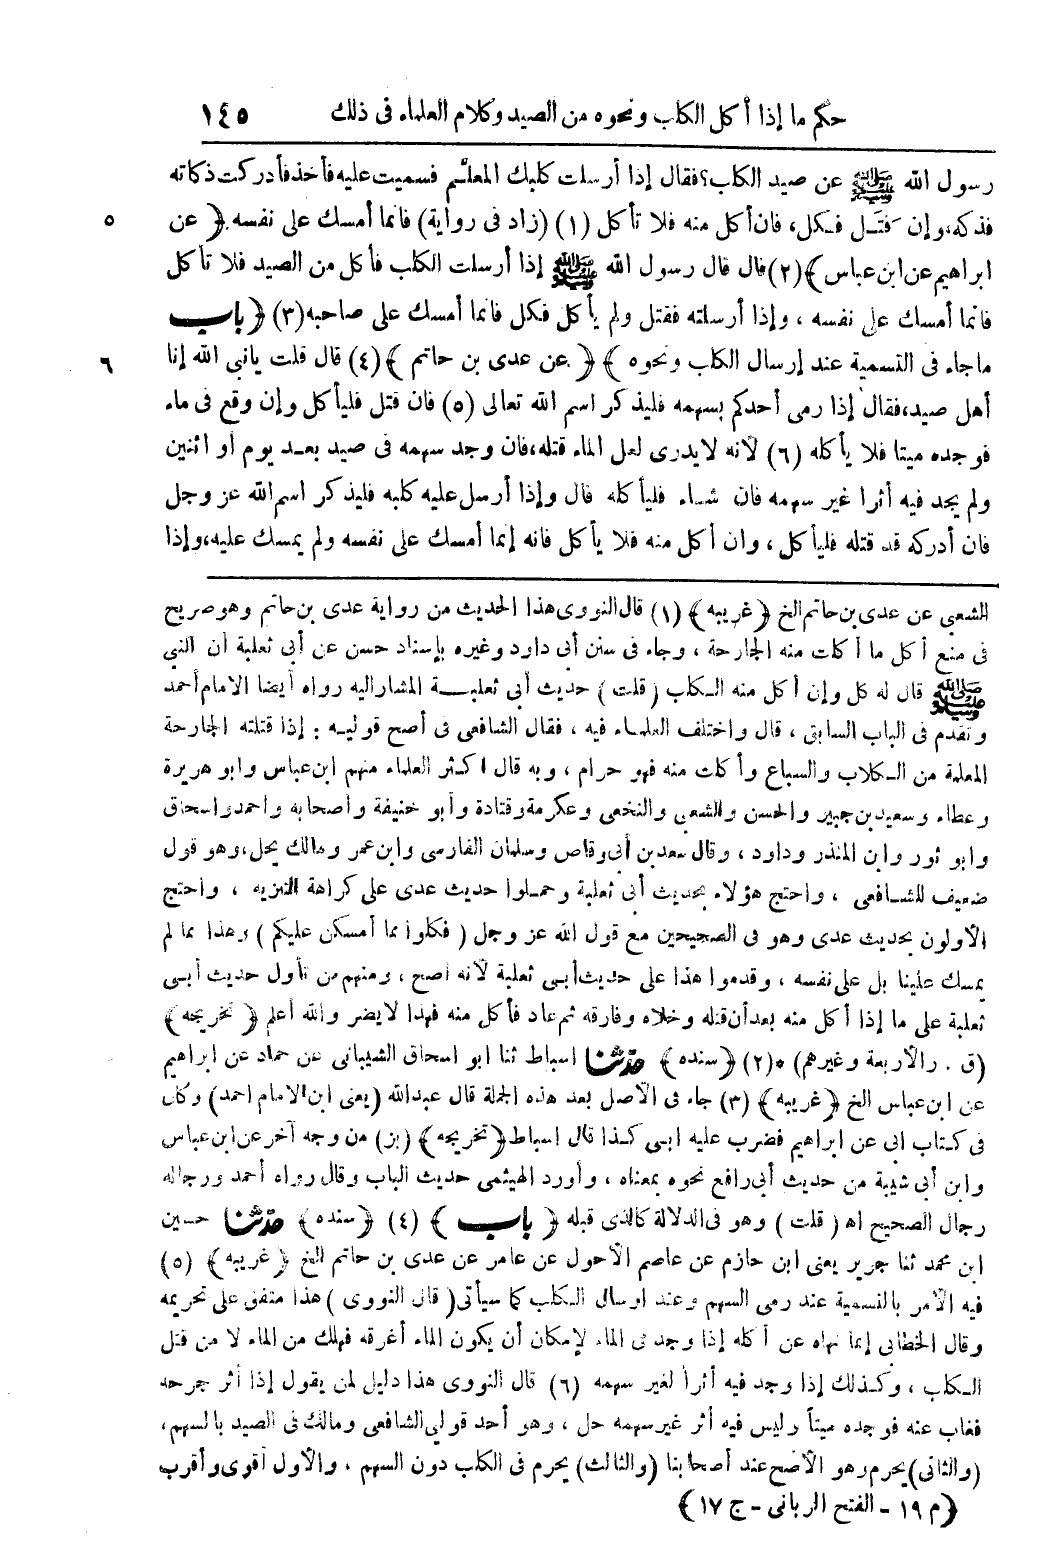 حكم ما إذا أكل الكلب ونحوه من الصيد وكلام العلماء فى ذلك ١٤٥
رسول الله ﷺ عن صيد الكلب؟فقال إذا أرسلت كلبك المعلَّم فسميت عليه فأخذ فأدركت ذكاته
فذكه،وإن قَتَل فكل، فان أكل منه فلا تأكل (١) (زاد فى رواية) فانما أمسك على نفسه ﴿ عن
ابراهيم عن ابن عباس ﴾(٢)قال قال رسول الله ﷺ إذا أرسلت الكلب فأكل من الصيد فلا تأكل
فانما أمسك على نفسه ، وإذا أرسلته فقتل ولم يأكل فكل فانما أمسك على صاحبه(٣) ﴿ باب
ما جاء فى التسمية عند إرسال الكلب ونحوه ﴾ ﴿ عن عدى بن حاتم ﴾(٤) قال قلت يانبى الله إنا
أهل صيد،فقال إذا رمى أحدكم بسهمه فليذكر اسم الله تعالى (٥) فان قتل فليأكل وإن وقع فى ماء
فوجده ميتا فلا يأكله (٦) لأنه لايدرى لعل الماء قتله،فان وجد سهمه فى صيد بعد يوم أو اثنين
ولم يجد فيه أثرا غير سهمه فان شاء فليأكله قال وإذا أرسل عليه كلبه فليذكر اسم الله عز وجل
فان أدركه قد قتله فليأكل ، وان أكل منه فلا يأكل فانه إنما أمسك على نفسه ولم يمسك عليه،وإذا
٥
٦
الشعبى عن عدى بن حاتم الخ ﴿ غريبه ﴾ (١) قال النووى هذا الحديث من رواية عدى بن حاتم وهو صريح
فى منع أكل ما أكلت منه الجارحة ، وجاء فى سنن أبى داود وغيره بإسناد حسن عن أبى ثعلبة أن النبى
ﷺ قال له كل وإن أكل منه الكلب (قلت) حديث أبى ثعلبة المشار اليه رواه أيضا الامام أحمد
وتقدم فى الباب السابق ، قال واختلف العلماء فيه ، فقال الشافعى فى أصح قوليه : إذا قتلته الجارحة
المعلمة من الكلاب والسباع وأكلت منه فهو حرام ، وبه قال اكثر العلماء منهم ابن عباس وابو هريرة
وعطاء وسعيد بن جبير والحسن والشعبى والنخعى وعكرمة وقتادة وأبو حنيفة وأصحابه واحمد واسحاق
وابو ثور وابن المنذر وداود ، وقال سعد بن أبى وقاص وسلمان الفارسى وابن عمر ومالك يحل،وهو قول
ضعيف للشافعى ، واحتج هؤلاء بحديث أبى ثعلبة وحملوا حديث عدى على كراهة التنزيه ، واحتج
الأولون بحديث عدى وهو فى الصحيحين مع قول الله عز وجل ( فكلوا مما أمسكن عليكم ) وهذا مما لم
يمسك علينا بل على نفسه ، وقدموا هذا على حديث أبى ثعلبة لأنه أصح ، ومنهم من تأول حديث أبى
ثعلبة على ما إذا أكل منه بعد أن قتله وخلاه وفارقه ثم عاد فأكل منه فهذا لايضر والله أعلم ﴿ تخريجه ﴾
(ق . والأربعة وغيرهم) *(٢) ﴿ سنده ﴾ حدثنا اسباط ثنا ابو اسحاق الشيبانى عن حماد عن ابراهيم
عن ابن عباس الخ ﴿ غريبه ﴾ (٣) جاء فى الأصل بعد هذه الجملة قال عبد الله (يعنى ابن الامام احمد) وكان
فى كتاب ابى عن ابراهيم فضرب عليه ابى كذا قال اسباط ﴿ تخريجه ﴾ (بز) من وجه آخر عن ابن عباس
وابن أبى شيبة من حديث أبى رافع نحوه بمعناه ، وأورد الهيثمى حديث الباب وقال رواه أحمد ورجاله
رجال الصحيح اه ( قلت ) وهو فى الدلالة كالذى قبله ﴿ باب ﴾ (٤) ﴿ سنده ﴾ حدثنا حسين
ابن محمد ثنا جرير يعنى ابن حازم عن عاصم الأحول عن عامر عن عدى بن حاتم الخ ﴿ غريبه ﴾ (٥)
فيه الأمر بالتسمية عند رمى السهم وعند ارسال الكلب كما سيأتى ( قال النووى ) هذا متفق على تحريمه
وقال الخطابى إنما نهاه عن أكله إذا وجد فى الماء لإمكان أن يكون الماء أغرقه فهلك من الماء لا من قتل
الكلب ، وكذلك إذا وجد فيه أثراً لغير سهمه (٦) قال النووى هذا دليل لمن يقول إذا أثر جرحه
فغاب عنه فوجده ميتاً وليس فيه أثر غير سهمه حل ، وهو أحد قولى الشافعى ومالك فى الصيد بالسهم ،
(والثانى)يحرم وهو الأصح عند أصحابنا (والثالث) يحرم فى الكلب دون السهم ، والأول أقوى وأقرب
﴿م ١٩ - الفتح الربانى - ج ١٧﴾